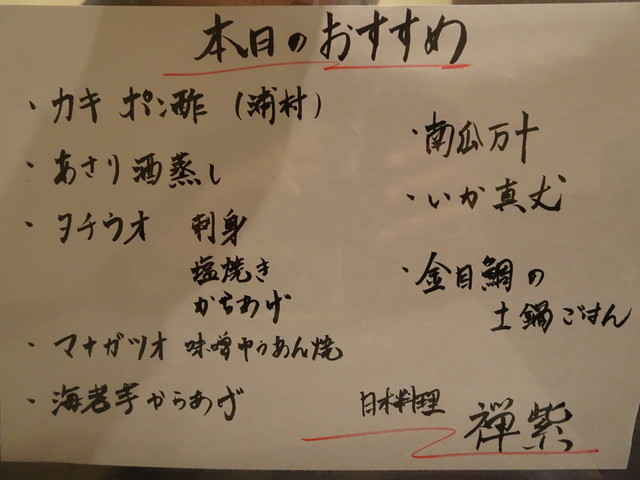 本日のおすすめ
・カキ ポン酢 (浦村)
・あさり酒蒸し
・タチウオ 刺身
塩焼き
からあげ
・マナガツオ 味噌ゆうあん焼
・海老芋からあげ
・南瓜万十
・いか真丈
・金目鯛の
土鍋ごはん
日本料理 禅紫